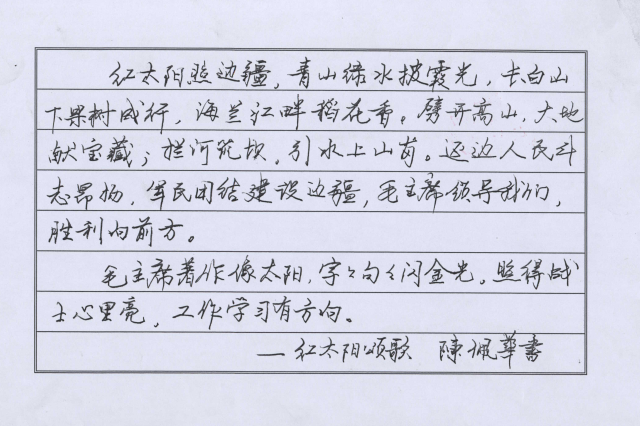 红太阳照边疆，青山绿水披霞光，长白山
下果树成行，海兰江畔稻花香。劈开高山，大地
献宝藏；拦河筑坝，引水上山岗。延边人民斗
志昂扬，军民团结建设边疆，毛主席领导我们，
胜利向前方。
毛主席著作像太阳，字々句々闪金光。照得战
士心里亮，工作学习有方向。
—红太阳颂歌 陈佩华书